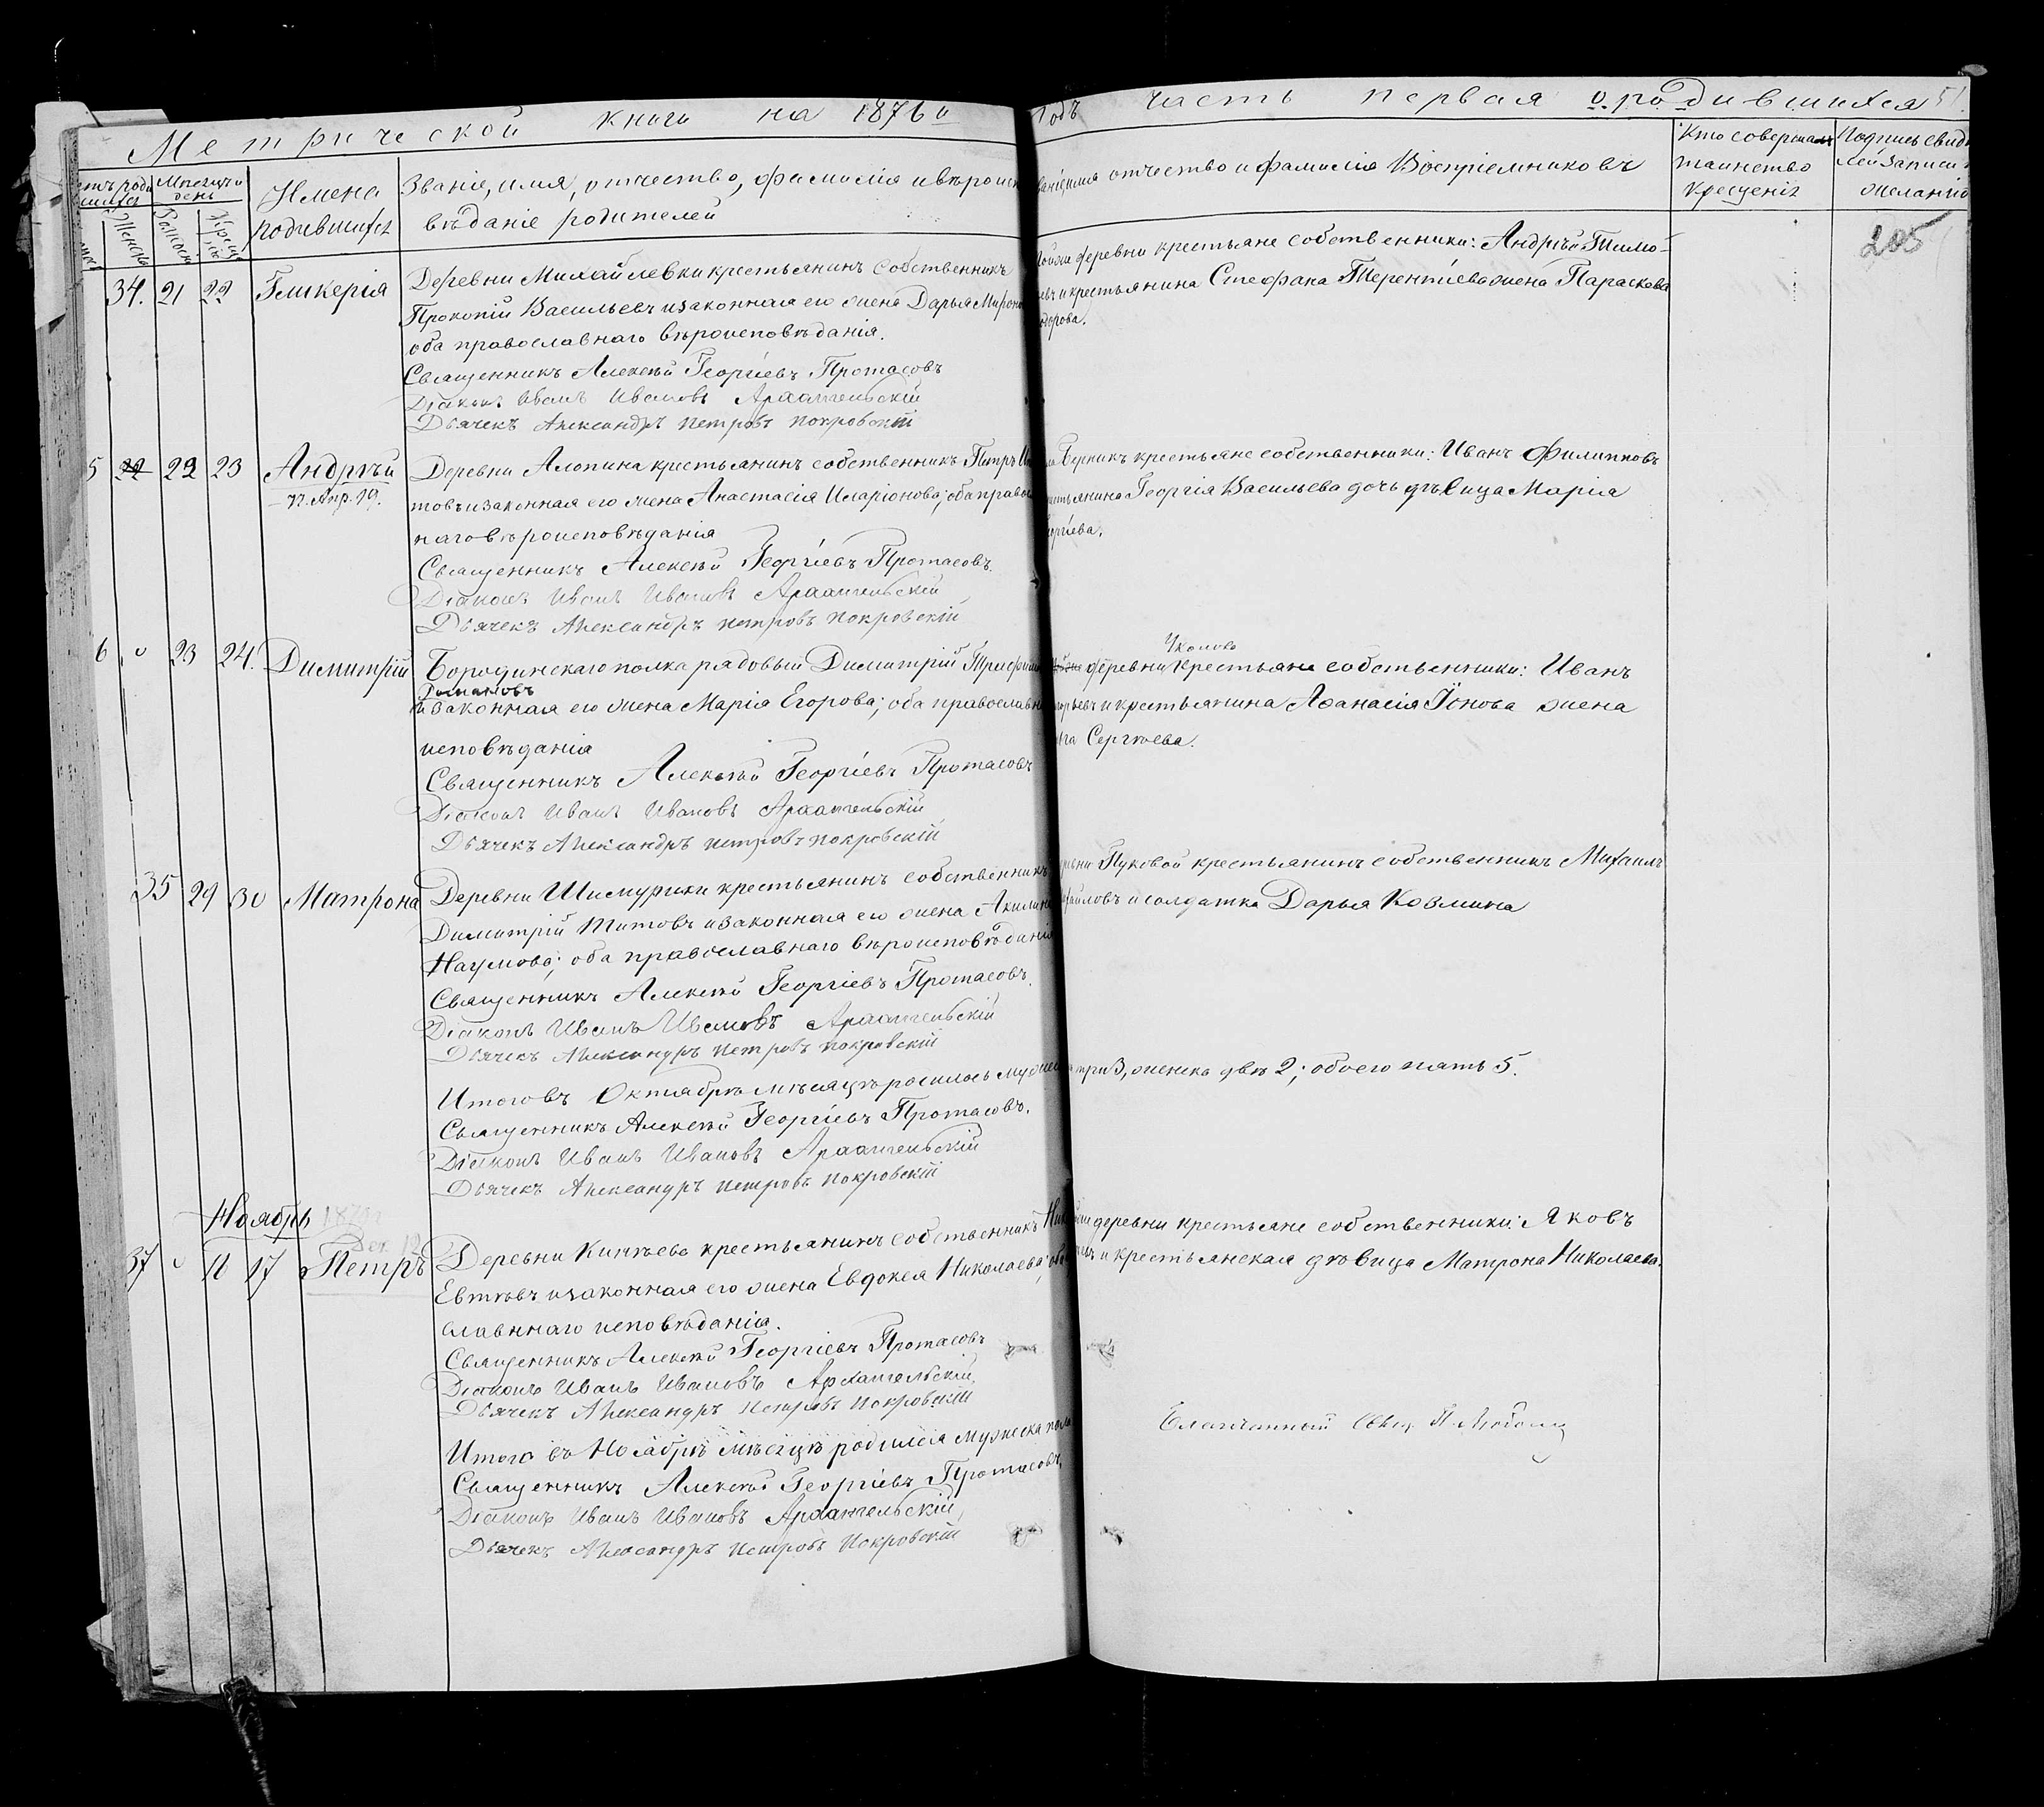 Метрической книги на 1876й
Годъ часть первая о родившихся 51.
Мѣсяцъ и день
Имена родившихся
Званіе, имя, отчество, фамилія и вѣроис
вѣданіе родителей
отчество и фамилія Воспріемниковъ
Кто совершалъ
таинство
крещенія
Подпись свид
записи
желанію
205
34. 21 22 Гликерія
Деревни Михайлевки крестьянинъ собственникъ
Прокопій Васильевъ и законная его жена Дарья Мирон
оба православнаго вѣроисповѣданія.
Священникъ Алексѣй Георгіевъ Протасовъ
Діаконъ Иванъ Ивановъ Архангельскій
Дьячекъ Александръ Петровъ Покровскій
деревни крестьяне собственники: Андрѣй Тимо-
евъ и крестьянина Стефана Терентіева жена Параскева
одорова.
5 22 22 23 Андрѣй
Деревни Алопина крестьянинъ собственникъ Петръ
товъ и законная его жена Анастасія Иларіонова; оба правос
наго вѣроисповѣданія
Священникъ Алексѣй Георгіевъ Протасовъ.
Діаконъ Иванъ Ивановъ Архангельскій
Дьячекъ Александръ Петровъ Покровскій
крестьяне собственники: Иванъ Филипповъ
тьянина Георгія Васильева дочь дѣвица Марія
оргіева.
6 23 24. Димитрій
Бородинскаго полка рядовый Димитрій Трифон
Романовъ
и законная его жена Марія Егорова; оба православн
исповѣданія
Священникъ Алексѣй Георгіевъ Протасовъ
Діаконъ Иванъ Ивановъ Архангельскій
Дьячекъ Александръ Петровъ Покровскій
деревни крестьяне собственники: Иванъ
орьевъ и крестьянина Аѳанасія Іонова жена
Сергѣева.
35 29 30 Матрона
Деревни крестьянинъ собственникъ
Димитрій Титовъ и законная его жена Акилина
Наумова; оба православнаго вѣроисповѣданія
Священникъ Алексѣй Георгіевъ Протасовъ.
Діаконъ Иванъ Ивановъ Архангельскій
Дьячекъ Александръ Петровъ Покровскій
Пуковой крестьянинъ собственникъ Михаилъ
айловъ и солдатка Дарья Козмина
Итого въ Октябрѣ мѣсяцѣ родилось мужеск
Священникъ Алексѣй Георгіевъ Протасовъ.
Діаконъ Иванъ Ивановъ Архангельскій
Дьячекъ Александръ Петровъ Покровскій
три 3, женска двѣ 2; обоего пять 5.
Ноябрь
37 17 Петръ
Деревни Кинѣева крестьянинъ собственникъ
Евтѣевъ и законная его жена Евдокея Николаева; оба
славннаго исповѣданія.
Священникъ Алексѣй Георгіевъ Протасовъ
Діаконъ Иванъ Ивановъ Архангельскій
Дьячекъ Александръ Петровъ Покровскій
деревни крестьяне собственники: Яковъ
и крестьянская дѣвица Матрона Николаева.
Итого въ Ноябрѣ мѣсяцѣ родился мужеска пола
Священникъ Алексѣй Георгіевъ Протасовъ.
Діаконъ Иванъ Ивановъ Архангельскій
Дьячекъ Александръ Петровъ Покровскій